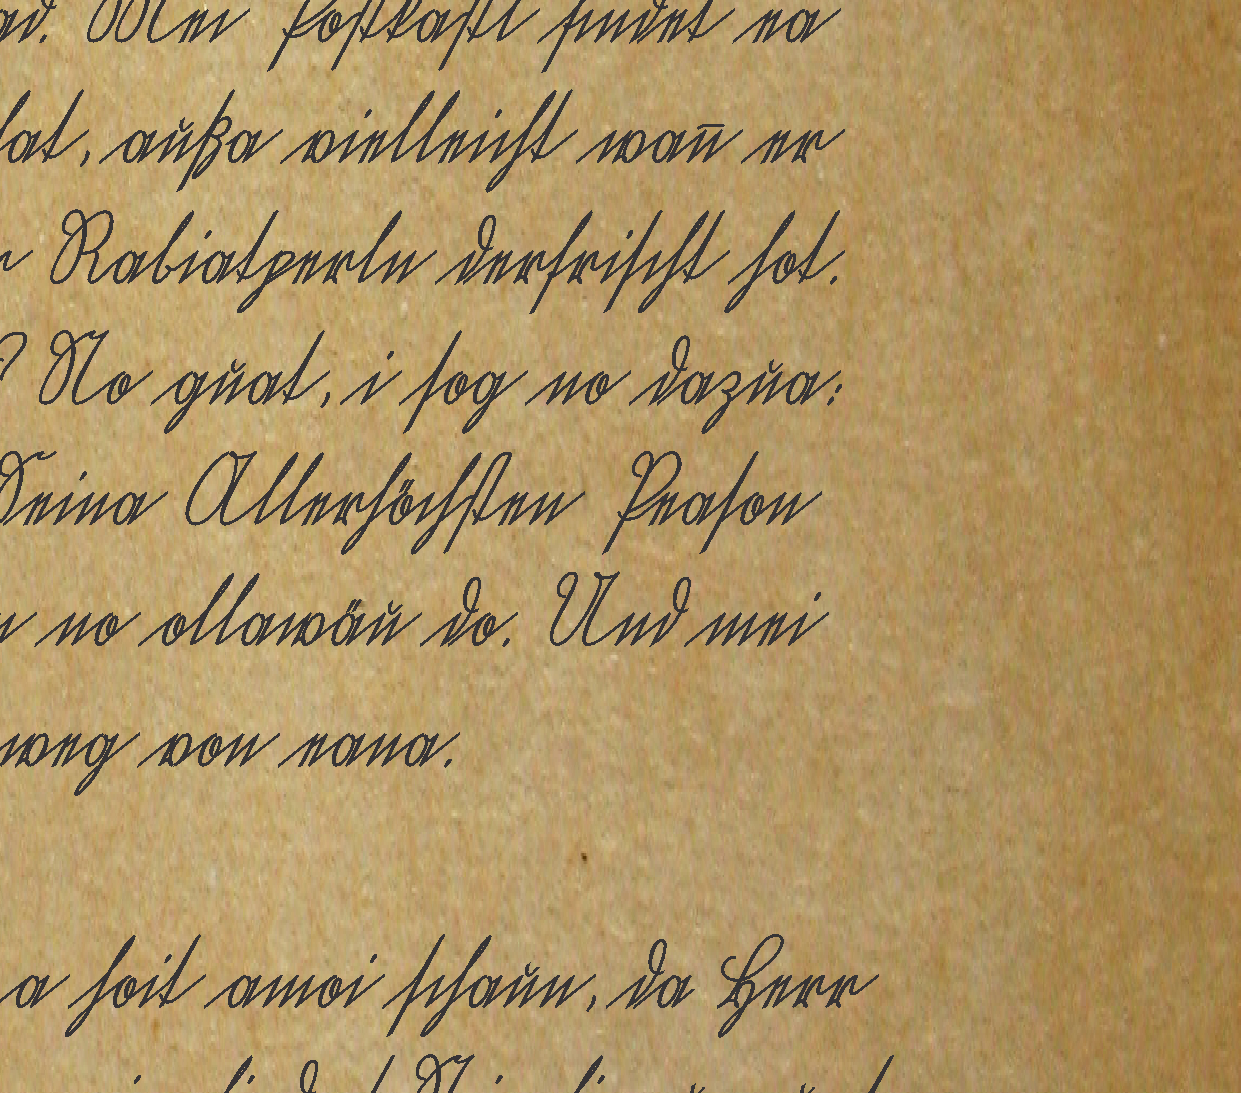 Mei Postkastl findet ea
, außa vielleicht wan̄ er
Rabiatperln derfrischt hot.
? No guat, i sog no dazua:
Seina Allerhöchsten Peason
no ollawäu do. Und mei
weg von eana.
a hoit amoi schaun, da Herr